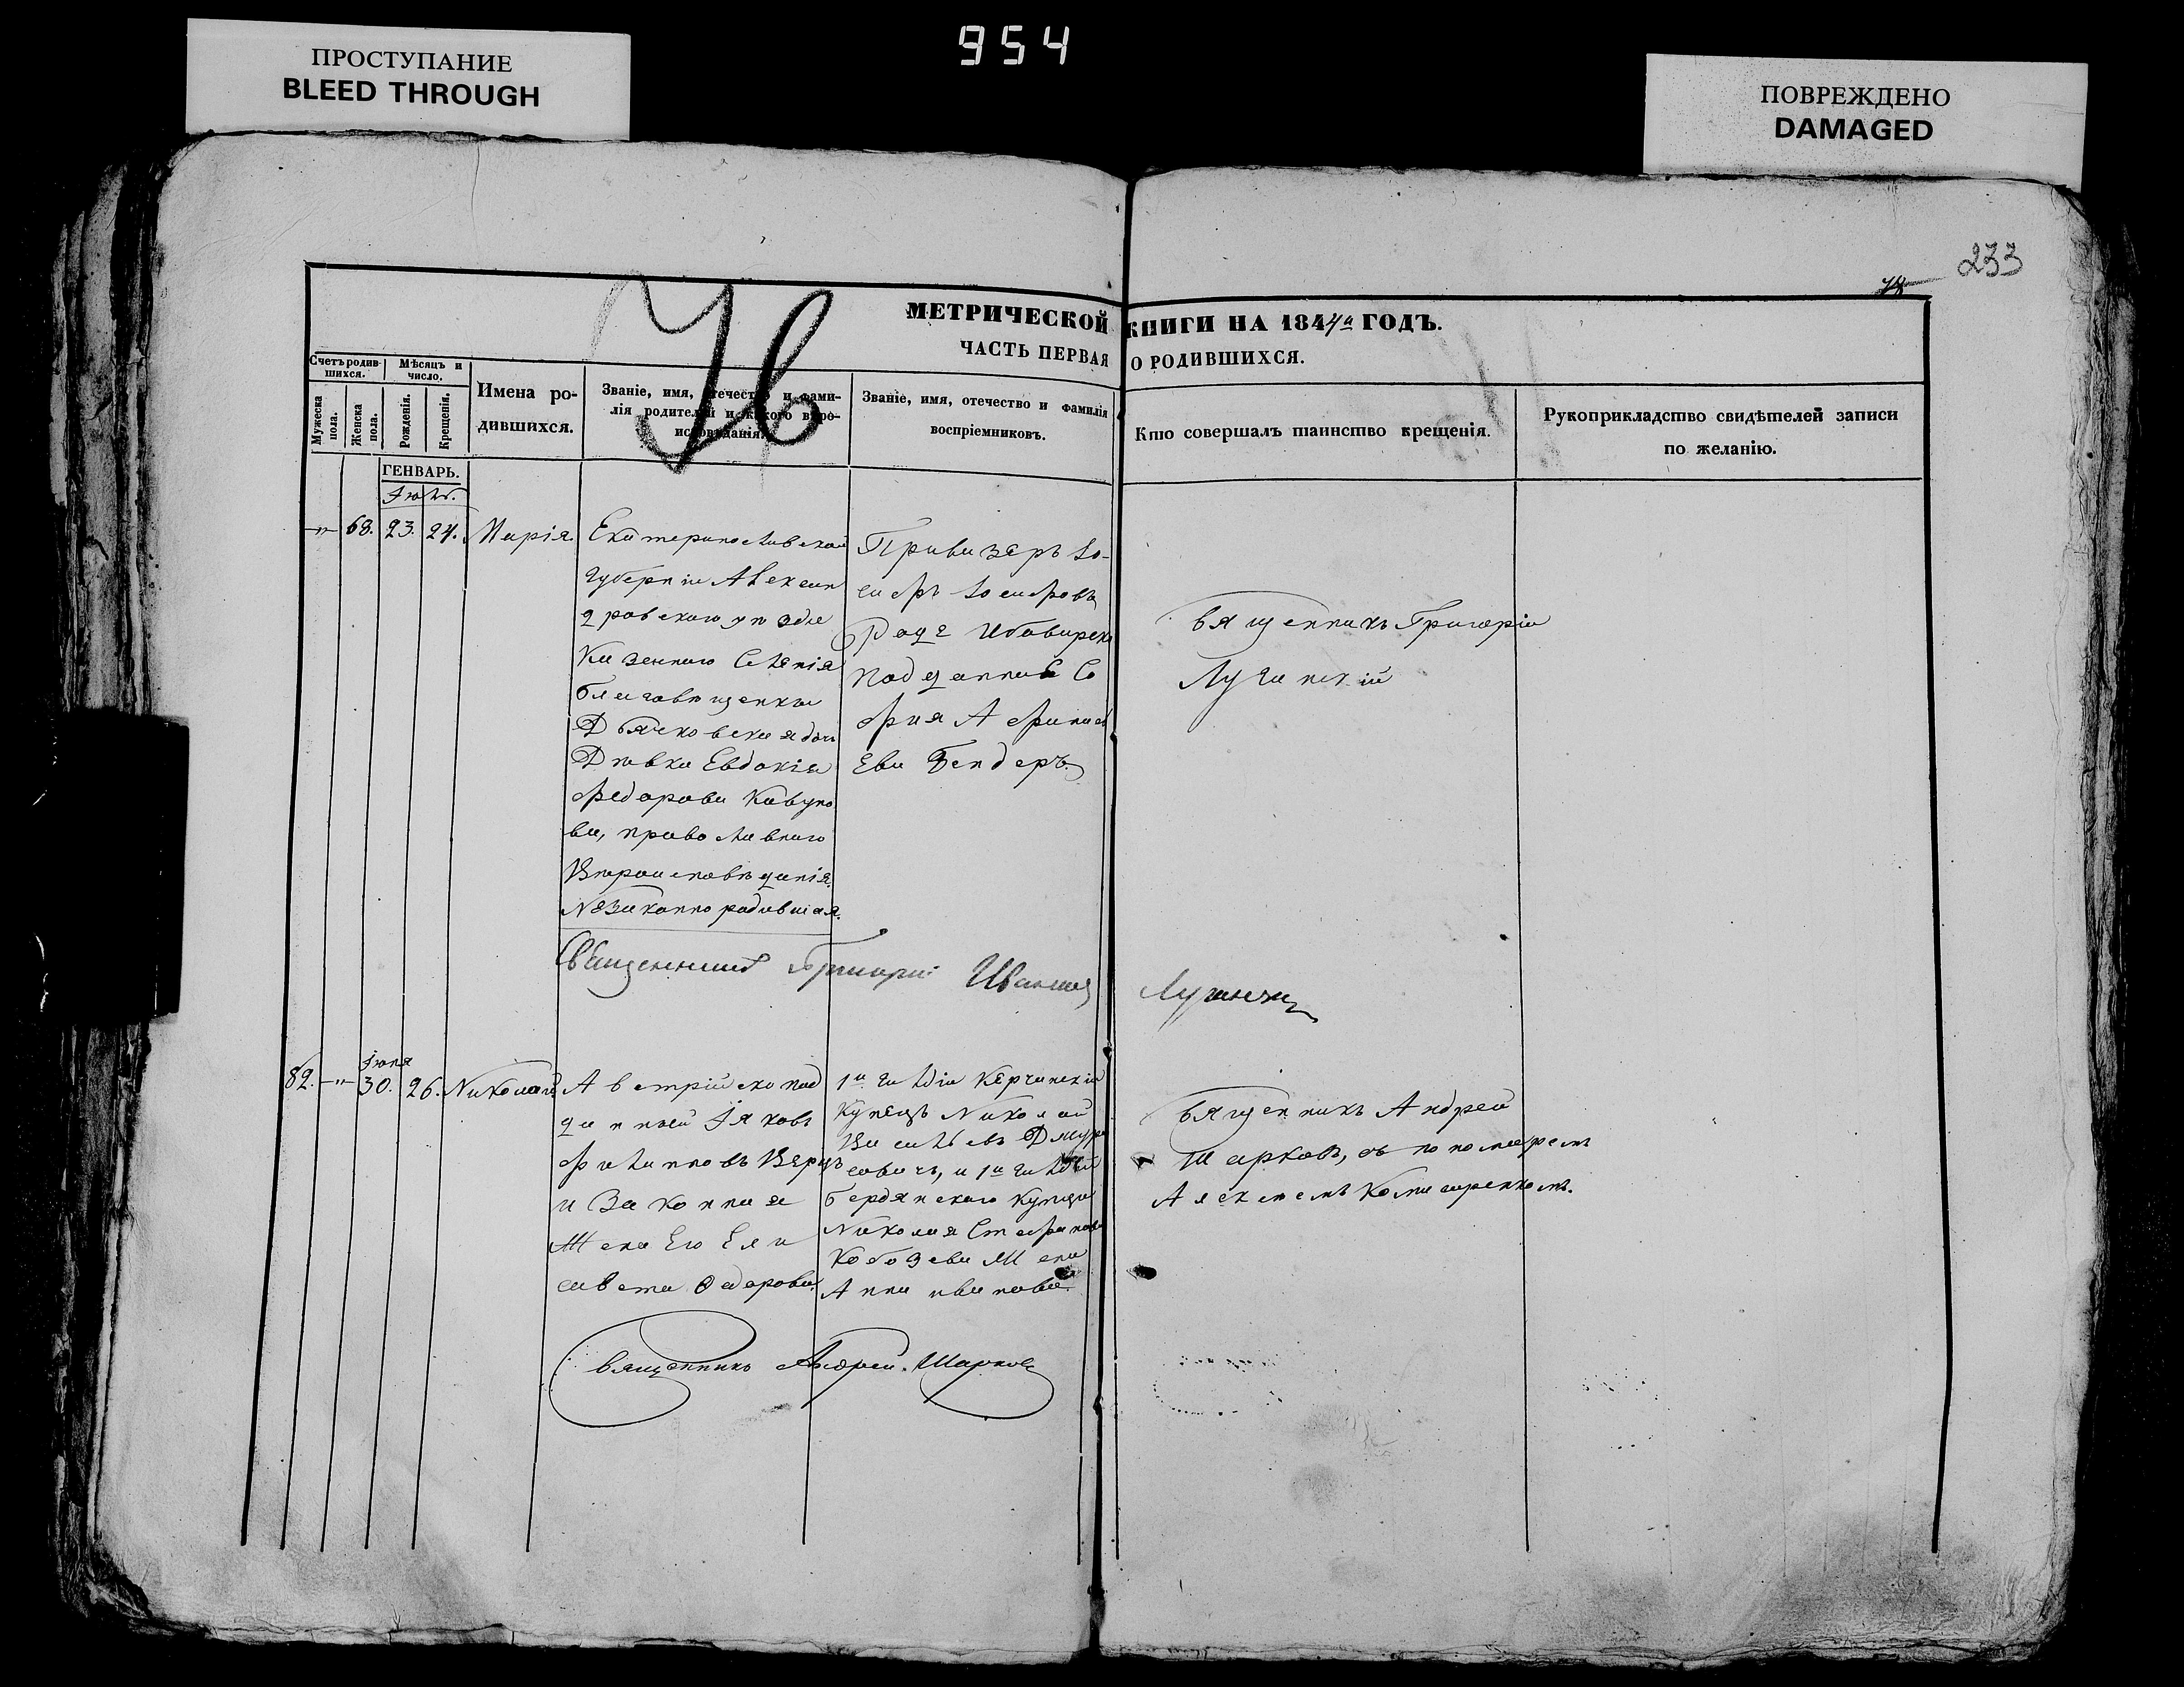 954
ПРОСТУПАНИЕ
BLEED THROUGH
ПОВРЕЖДЕНО
DAMAGED
233
76
МЕТРИЧЕСКОЙ КНИГИ НА 1844й ГОДЪ.
ЧАСТЬ ПЕРВАЯ О РОДИВШИХСЯ.
Счетъ родившихся.
Мѣсяцъ и число.
Мужеска пола.
Женска пола.
Рожденія.
Крещенія.
Имена родившихся.
Званіе, имя, отечество и фамилія родителей и какого вѣроисповѣданія.
Званіе, имя, отечество и фамилія воспріемниковъ.
Кто совершалъ таинство крещенія.
Рукоприкладство свидѣтелей записи по желанію.
ГЕНВАРЬ.
Іюль.
–"– 68. 23. 24. Марія.
Екатеринославской
Губерніи Александ
дровскаго уѣзда
Казеннаго Селенія
благовѣщенки
Дьячковская дочь
Дѣвка Евдокія
Федорова Кавуно
ва, православнаго
Вѣроисповѣданія.
Незаконнорожденная.
Провизоръ Іо-
сифъ Іосифовъ
Роде
подданная Со
фія Афанась
Ева Бендеръ
Священникъ Григорій
Лучинскій
Священникъ Григорій Ивановъ Лучинскій
82. –"– Іюня 30. 26. Николай
Австрійско под
данный Іяковъ
Филиповъ Верцъ
и Законная
Жена Его Ели
савета Федорова.
1й гильдіи Керчинскій
Купецъ Николай
Васильевъ
совичъ, и 1й гильдіи
бердянскаго Купца
Николая Стефанова
Кобозева Жена
Анна Иванова.
Священникъ Андрей
Шарковъ, съ пономаремъ
Алексѣемъ
Священникъ Андрей Шарковъ